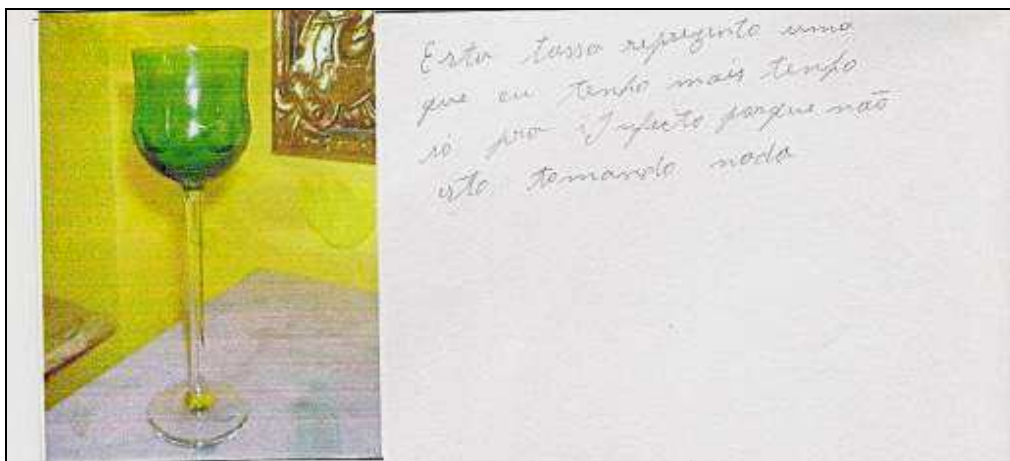 Esta tassa reprezenta uma
que eu tenho mais tenho
só pra Infeite porque não
esto tomando nada